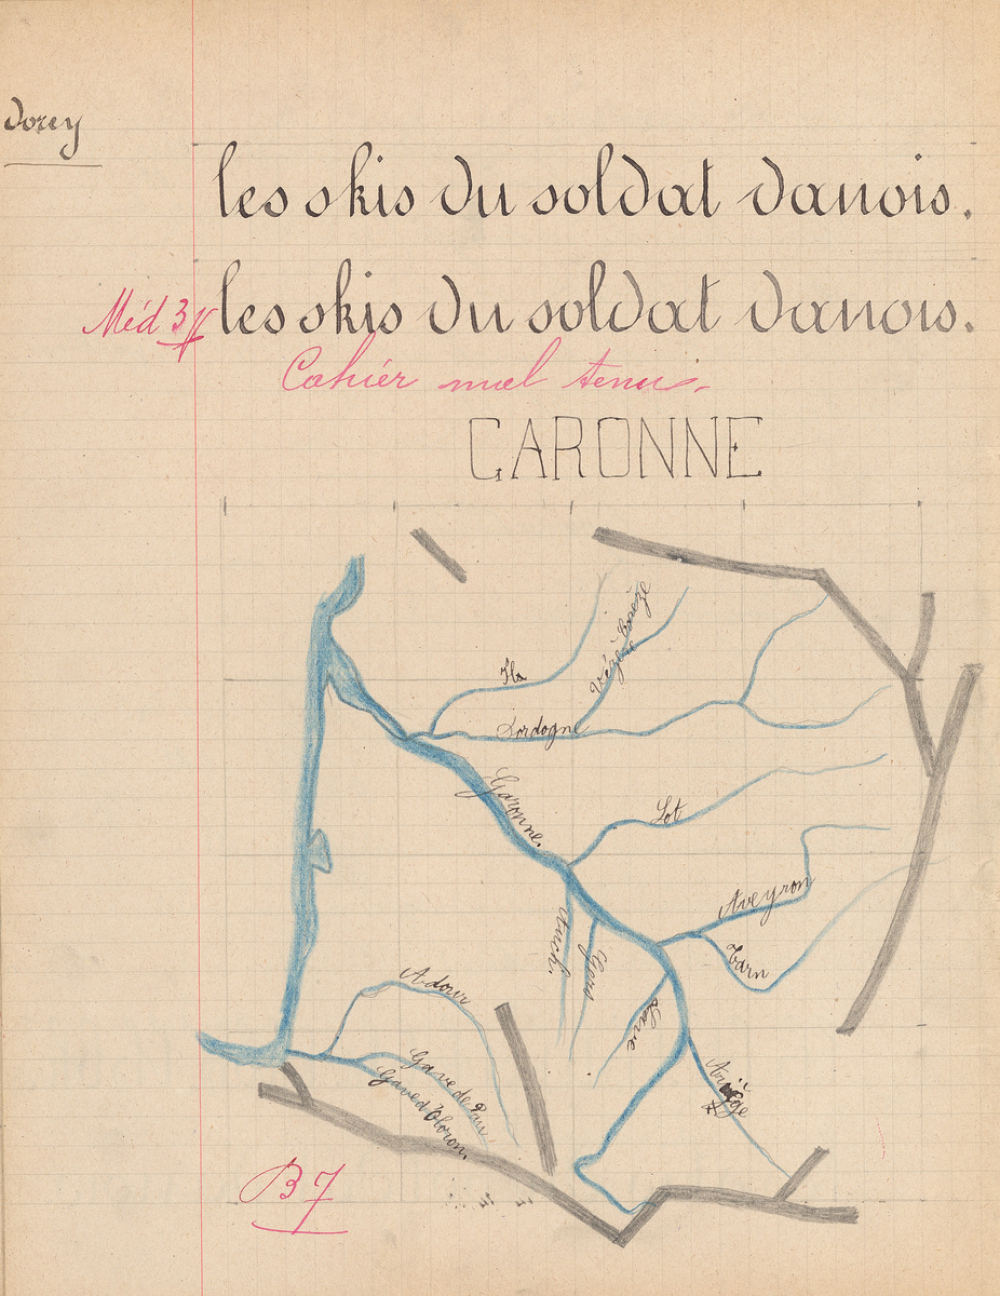 Dorey
les skis du soldat danois.
Méd 3
les skis du soldat danois.
Cahier mal tenu.
GARONNE
Isle
Vézère
Corrèze
Dordogne
Garonne.
Lot
Aveyron
Tarn
Auch.
Gers
Save
Ariège
Adour
Gave de Pau
Gave d'Oloron.
B 7